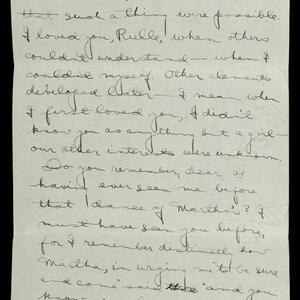 ~~that~~ such a thing were possible.
I loved you, Rielle, when others
couldn't understand – when I
couldn't myself. Other elements
developed later – I mean when
I first loved you, I didn't
know you as anything but a girl –
our other interests were unknown.
Do you remember, dear, of
having ever seen me before
that dance of Martha's? I
must have seen you before,
for I remember distinctly how
Martha, in urging me "to be sure
and come" said "and you
know